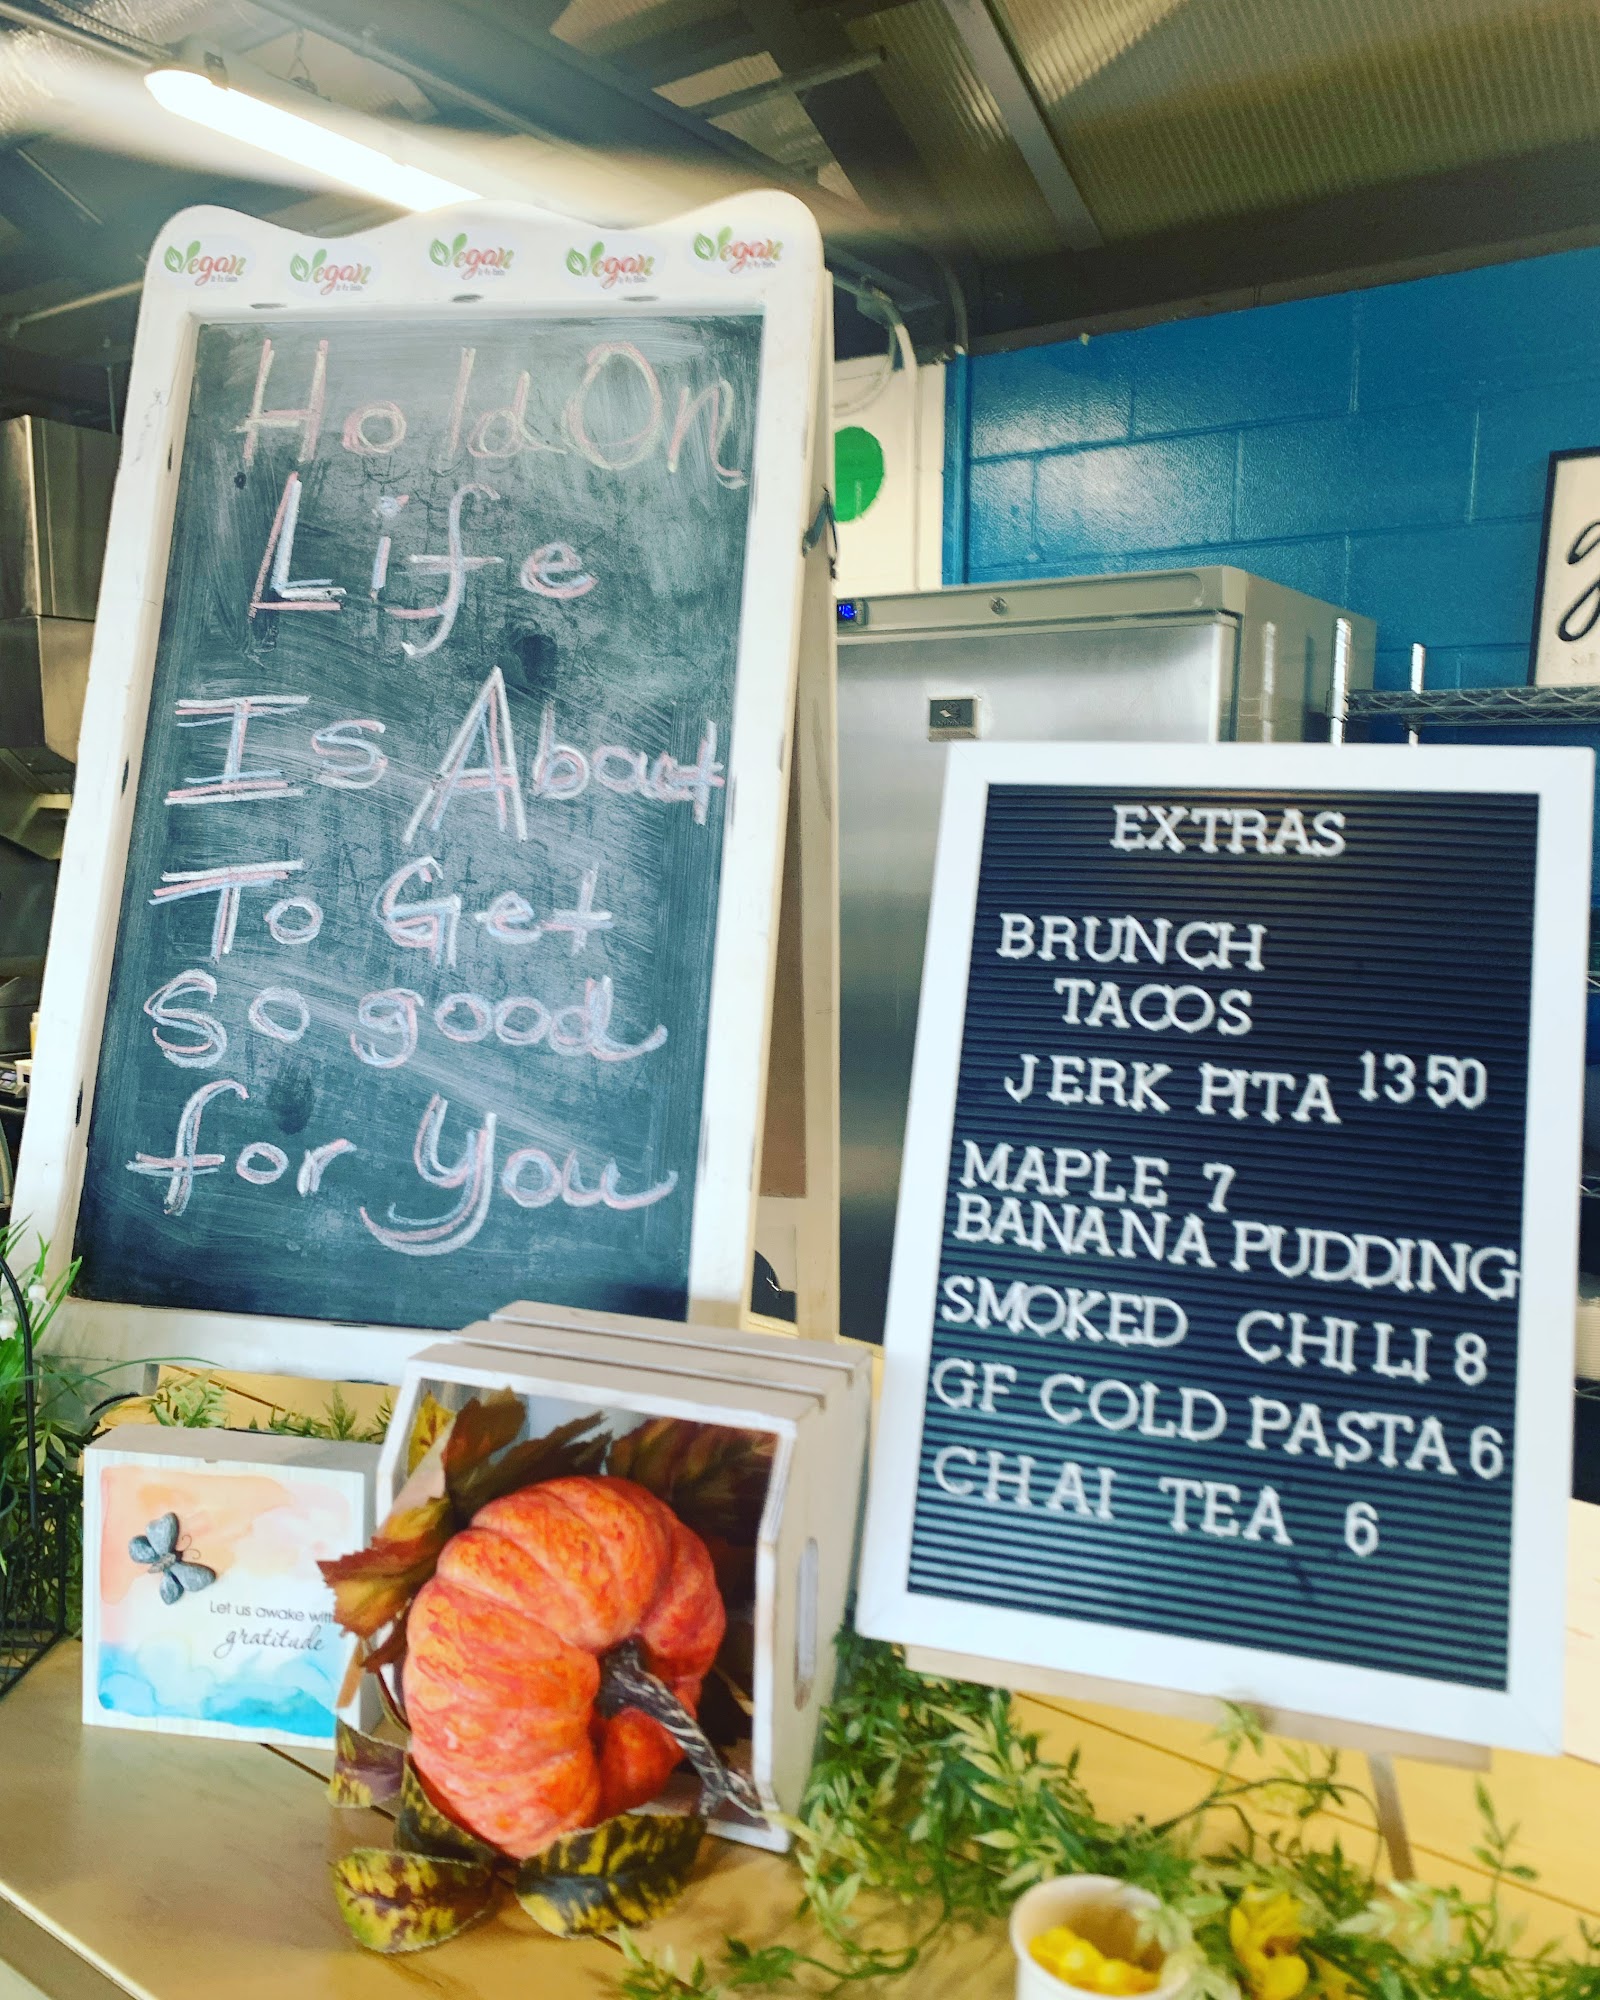 Vegan Vegan Vegan Vegan Vegan
Hold On
Life
Is About
To Get
So good
for You
EXTRAS
BRUNCH
TACOS
JERK PITA 13 50
MAPLE 7
BANANA PUDDING
SMOKED CHILI 8
GF COLD PASTA 6
CHAI TEA 6
Let us awake with
gratitude